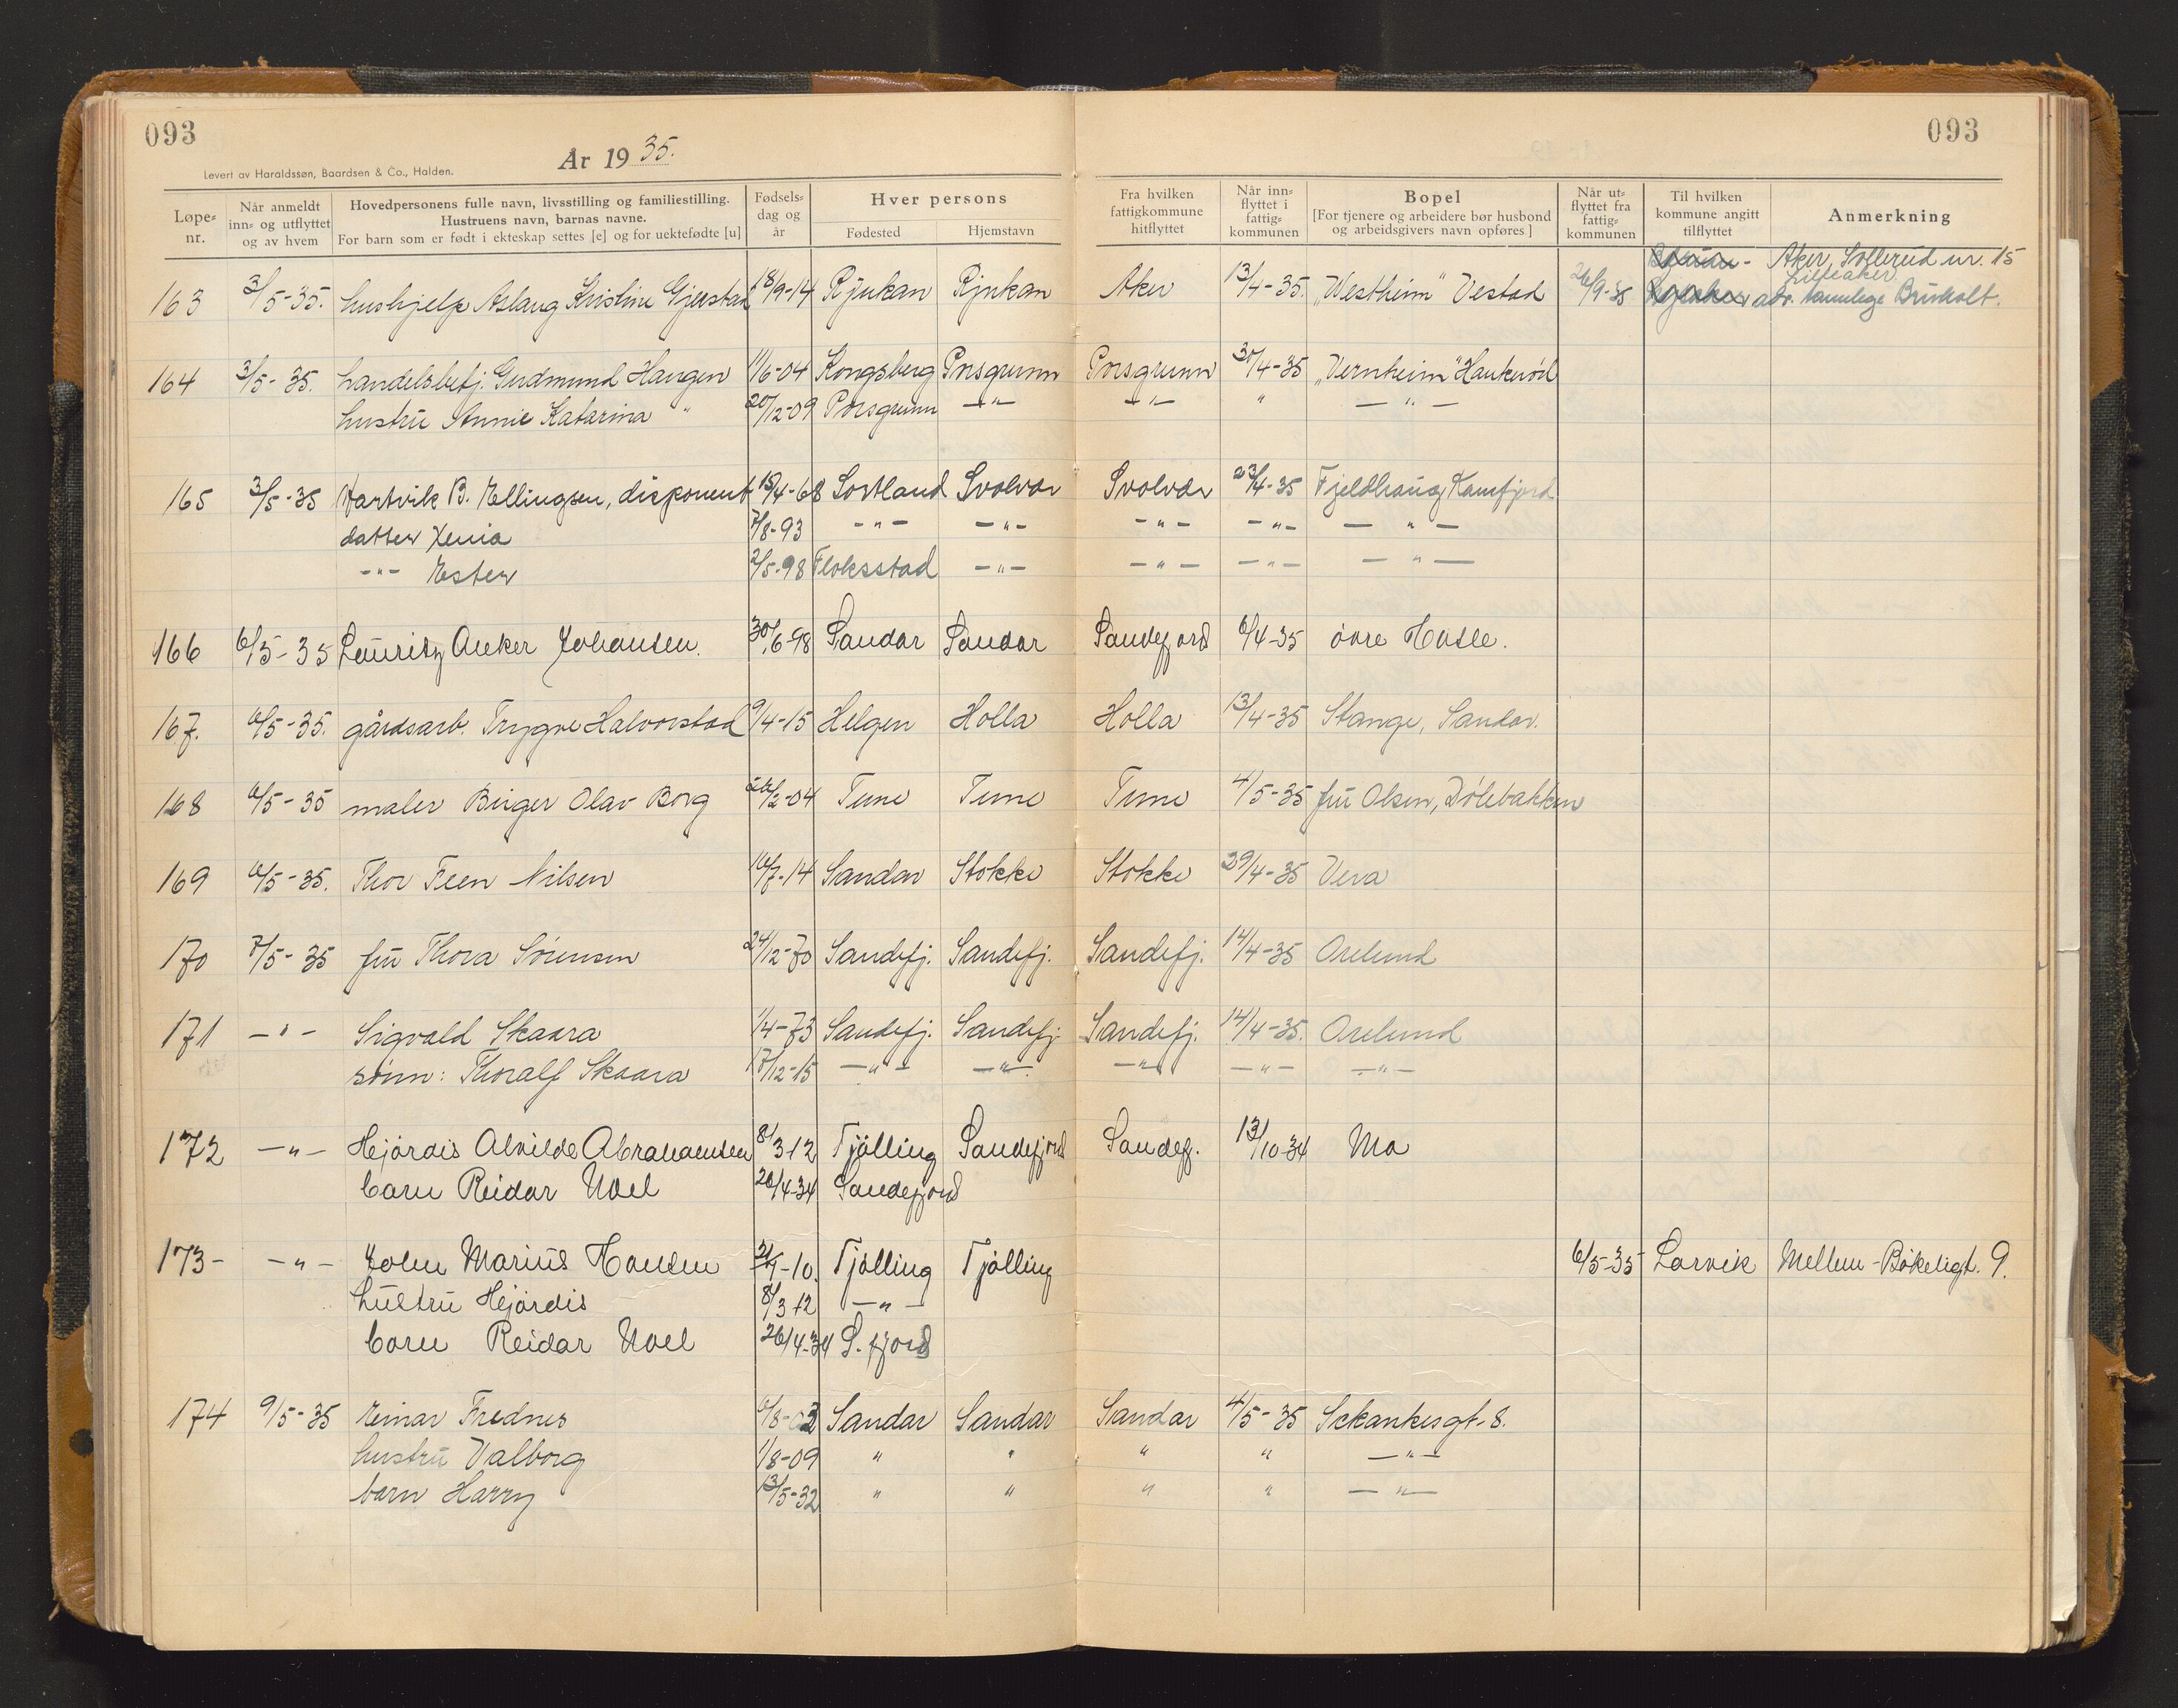 093
093
År 1935.
Levert av Haraldssøn, Baardsen & Co., Halden.
Løpe-nr. | Når anmeldt inn- og utflyttet og av hvem | Hovedpersonens fulle navn, livsstilling og familiestilling. Hustruens navn, barnas navne. For barn som er født i ekteskap settes [e] og for uektefødte [u] | Fødsels-dag og år | Hver persons Fødested | Hjemstavn | Fra hvilken fattigkommune hitflyttet | Når inn-flyttet i fattig-kommunen | Bopel [For tjenere og arbeidere bør husbond og arbeidsgivers navn opføres] | Når ut-flyttet fra fattig-kommunen | Til hvilken kommune angitt tilflyttet | Anmerkning
Aker, Sollerud nr. 15
Lilleaker
163 3/5-35. hushjelp Aslaug Kristine Gjerstad 18/9-14 Rjukan Rjukan Aker 13/4-35. "Westheim" Vestad 26/9-35 adr. tannlege Bruholt.
164 3/5-35. handelsbetj. Gudmund Haugen 11/6-04 Kongsberg Porsgrunn Porsgrunn 30/4-35 "Vernheim" Haukerød
hustru Annie Katarina " 20/12-09 Porsgrunn -"- -"- " -"-
165 3/5-35 Hartvik B. Ellingsen, disponent 15/4-68 Sortland Svolvær Svolvær 23/4-35 Fjeldhaug Kamfjord
datter Xenia 7/8-93 -"- -"- -"- -"- -"-
-"- Ester 2/5-98 Floksstad -"- -"- -"- -"-
166 6/5-35 Lauritz Anker Johansen. 30/6-98 Sandar Sandar Sandefjord 6/4-35 övre Hasle.
167. 6/5-35. gårdsarb. Trygve Halvorstad 9/4-15 Helgen Holla Holla 13/4-35 Stange, Sandar.
168 6/5-35 maler Birger Olav Borg 26/2-04 Tune Tune Tune 4/5-35 fru Olsen, Dölebakken
169 6/5-35. Thor Feen Nilsen 16/7-14 Sandar Stokke Stokke 29/4-35 Vera
170 7/5-35 fru Thora Sörensen 24/12-70 Sandefj. Sandefj. Sandefj. 14/4-35 Orelund
171 -"- Sigvald Skaara 1/4-73 Sandefj. Sandefj. Sandefj. 14/4-35. Orelund
sönn: Thoralf Skaara 17/12-15 -"- -"- -"- -"- -"-
172 -"- Hejördis Alvilde Abrahamsen 8/3 12 Tjölling Sandefjord Sandefj. 13/10-34 Mo
barn Reidar Noel 26/4-34 Sandefjord
173- -"- John Marius Hansen 21/1-10. Tjölling Tjölling 6/5-35 Larvik Mellem-Bökeligt. 9.
hustru Hejördis 8/3 12 -"-
barn Reidar Noel 26/4-34 S.fjord
174 9/5-35 Einar Frednes 6/8-03 Sandar Sandar Sandar 4/5-35 Schankesgt. 8.
hustru Valborg 1/8-09 " " " " -"-
barn Harry 13/5-32 " " " " -"-